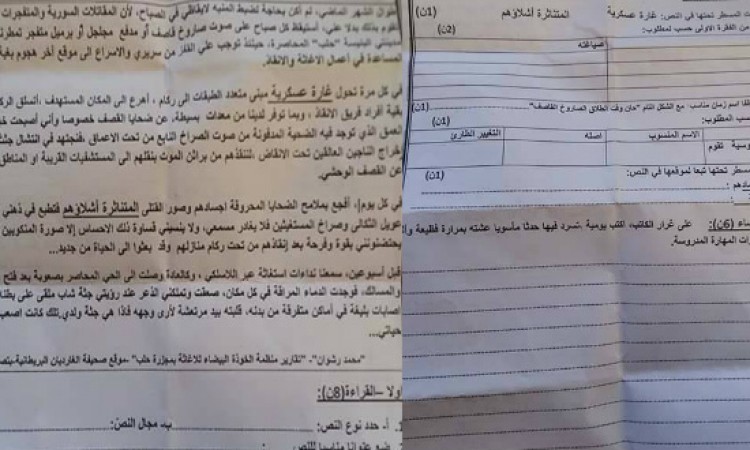 طوال الشهر الماضي، لم أكن بحاجة لضبط المنبه لإيقاظي في الصباح، لأن المقاتلات السورية والمتفجرات
تقوم بذلك بدلا عني، أستيقظ كل صباح على صوت صاروخ قاصف أو مدفع مجلجل أو برميل متفجر تمطر
مدينتي البئيسة "حلب" المحاصرة، حينئذ توجب علي القفز من سريري والاسراع الى موقع آخر هجوم بغية
المساعدة في أعمال الاغاثة والانقاذ.
في كل مرة تحول غارة عسكرية مبنى متعدد الطبقات الى ركام ، أهرع الى المكان المستهدف ،أتسلق
بقية أفراد فريق الانقاذ ، وبما توفر لدينا من معدات بسيطة. عن ضحايا القصف خصوصا وأني أصبحت
العمق الذي توجد فيه الضحية المدفونة من صوت الصراخ النابع من تحت الاعماق ،فنجتهد في انتشال
إخراج الناجين العالقين تحت الانقاض ،لننقذهم من براثن الموت بنقلهم الى المستشفيات القريبة او المناطق
عن القصف الوحشي.
في كل يوم، أفجع بملامح الضحايا المحروقة اجسادهم وصور القتلى المتناثرة أشلاؤهم فتطبع في ذهني
عويل الثكالى وصراخ المستغيثين فلا يغادر مسمعي، ولا ينسيني قساوة ذلك الاحساس إلا صورة المنكوبين
يحتضنونني بقوة وفرحة بعد إنقاذهم من تحت ركام منازلهم وقد بعثوا الى الحياة من جديد...
قبل أسبوعين، سمعنا نداءات استغاثة عبر اللاسلكي ، وكالعادة وصلت الى الحي المحاصر بصعوبة بعد فتح
والمسالك، فوجدت الدماء المراقة في كل مكان، صعقت وتملكني الذعر عند رؤيتي جثة شاب ملقى على
اصابات بليغة في أماكن متفرقة من بدنه، قلبته بيد مرتعشة لأرى وجهه فاذا هي جثة ولدي،تلك كانت
حياتي...
"محمد رشوان"- "تقارير منظمة الخوذة البيضاء للاغاثة بمجزرة حلب" -موقع صحيفة الغارديان البريطانية
اولا –القراءة(8ن):
1. أ- حدد نوع النص: ب- مجال النص:
ضع عنوانا مناسبا للنص
المسطر تحتها في النص: غارة عسكرية المتناثرة أشلاؤهم (1ن)
من الفقرة الاولى حسب المطلوب: (2ن)
صياغته
اسم زمان مناسب مع الشكل التام "حان وقت انطلاق الصاروخ القاصف" (1ن)
حسب المطلوب:
الاسم المنسوب اصله التغيير الطارئ
تقوم
مسطر تحتها تبعا لموقعها في النص: (1ن)
(6ن): على غرار الكاتب، اكتب يومية ،تسرد فيها حدثا مأسويا عشته بمرارة فظيعة
المهارة المدروسة.